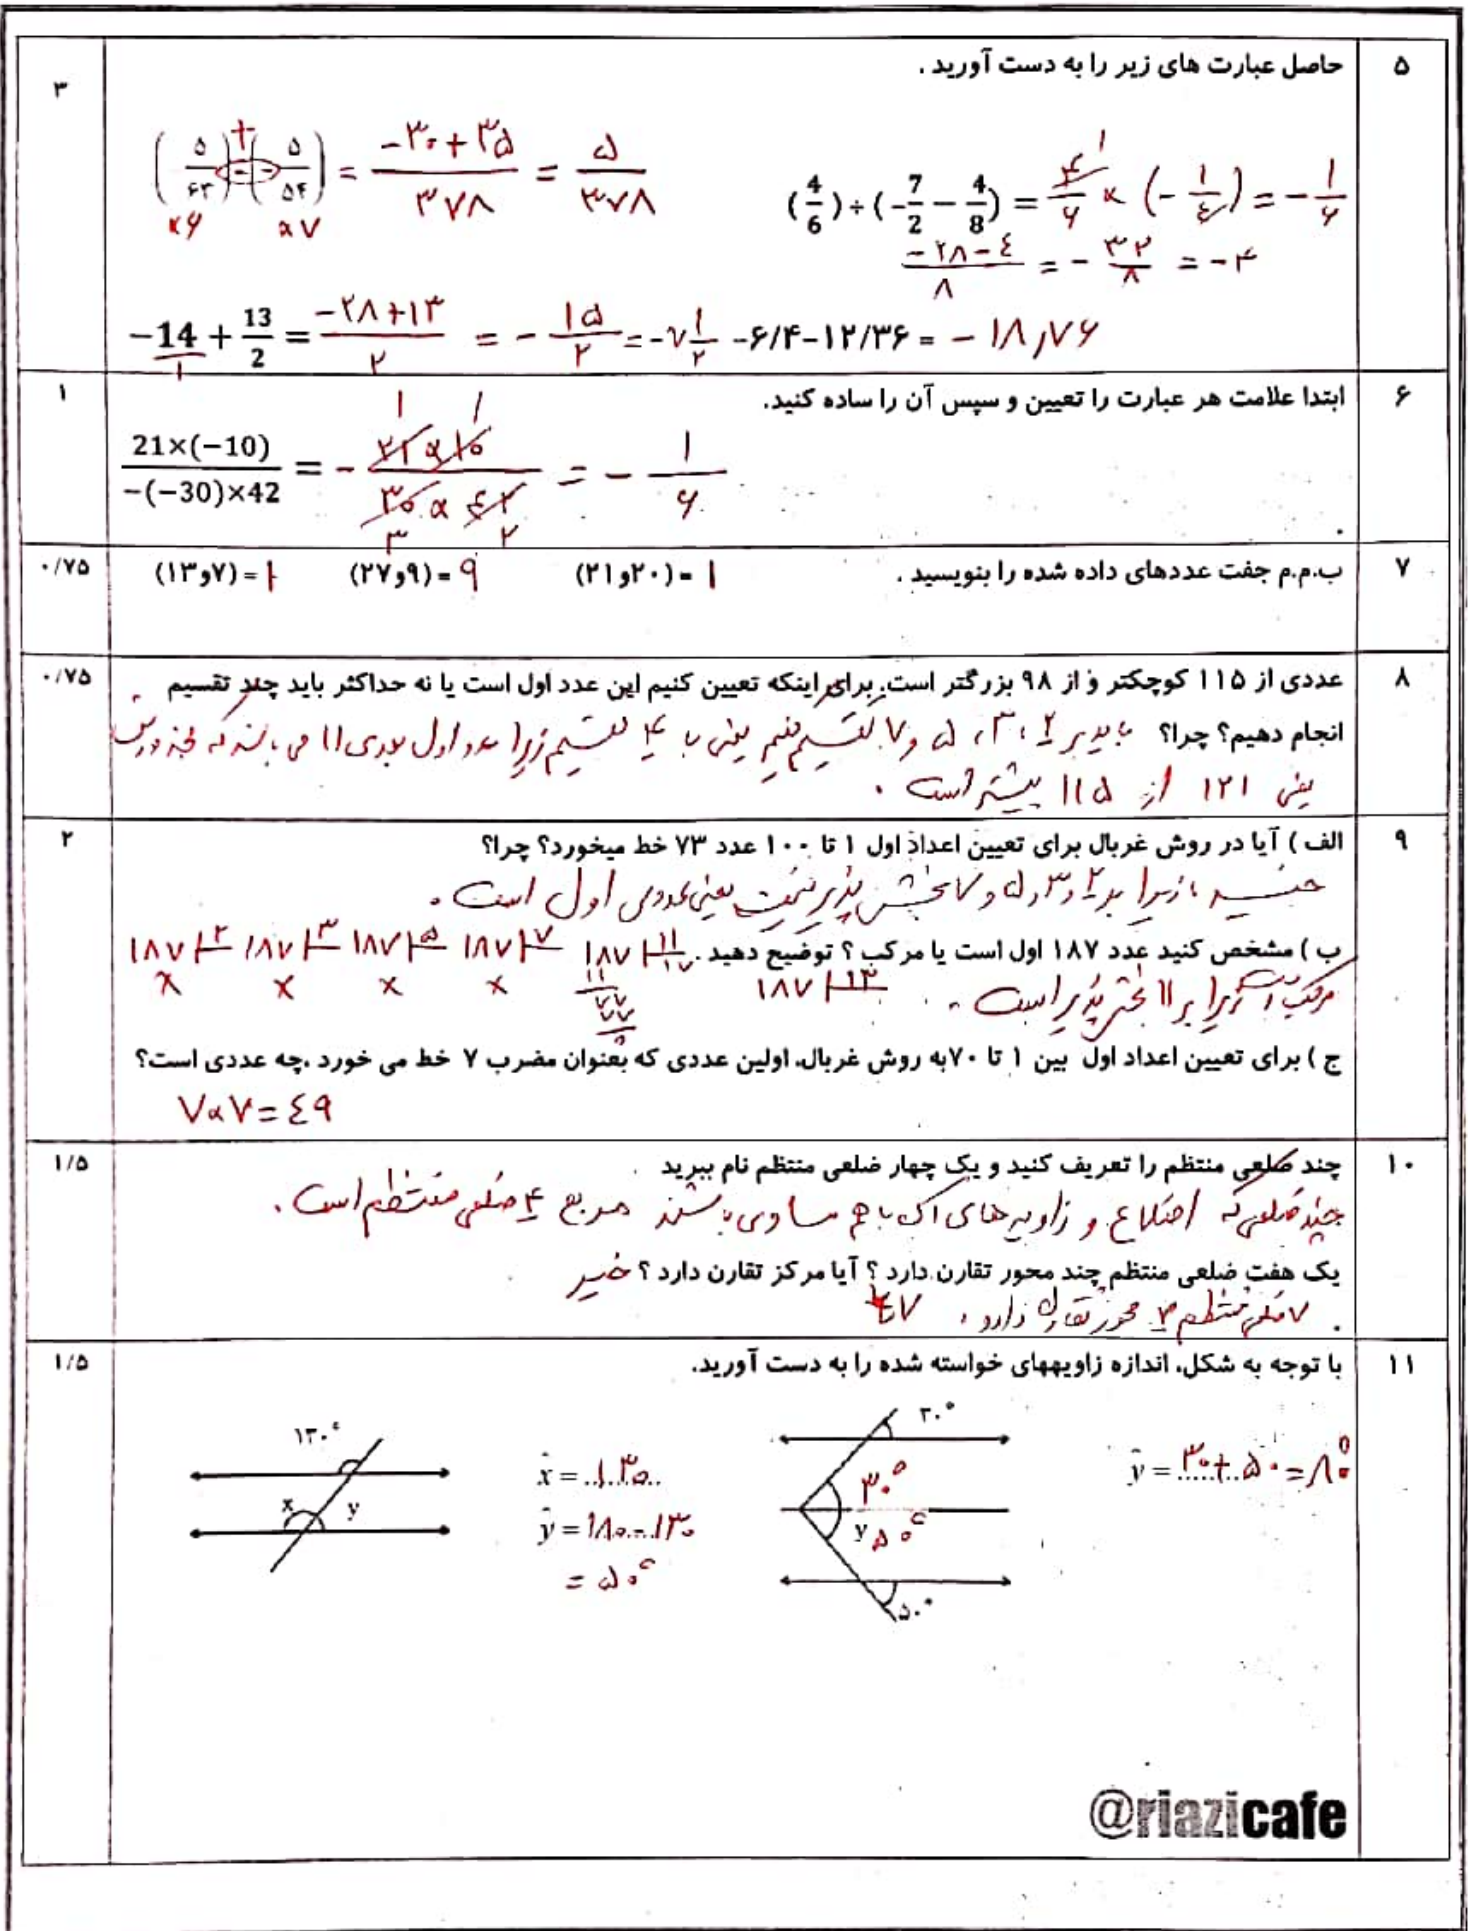 ۵ حاصل عبارت های زیر را به دست آورید . ۳
(4/6) ÷ (-7/2 - 4/8) = ۴/۶ × (-۱/۴) = -۱/۶
(-۲۸-۴)/۸ = -۳۲/۸ = -۴
(۵/۶۳ - - ۵/۵۴) = (-۳۰+۳۵)/۳۷۸ = ۵/۳۷۸
×۶ ×۷
-14 + 13/2 = (-۲۸+۱۳)/۲ = -۱۵/۲ = -۷ ۱/۲
-۶/۴-۱۲/۳۶ = -۱۸٫۷۶
۶ ابتدا علامت هر عبارت را تعیین و سپس آن را ساده کنید. ۱
21×(-10)/-(-30)×42 = - ۲۱×۱۰/۳۰×۴۲ = - ۱/۶
۷ ب.م.م جفت عددهای داده شده را بنویسید . (۲۱و۲۰) = ۱ (۲۷و۹) = ۹ (۱۳و۷) = ۱ ۰/۷۵
۸ عددی از ۱۱۵ کوچکتر و از ۹۸ بزرگتر است. برای اینکه تعیین کنیم این عدد اول است یا نه حداکثر باید چند تقسیم ۰/۷۵
انجام دهیم؟ چرا؟ باید بر ۲، ۳، ۵ و ۷ تقسیم کنیم یعنی با ۴ تقسیم زیرا عدد اول بعدی ۱۱ می باشد که مجذورش
یعنی ۱۲۱ از ۱۱۵ بیشتر است .
۹ الف ) آیا در روش غربال برای تعیین اعداد اول ۱ تا ۱۰۰ عدد ۷۳ خط میخورد؟ چرا؟ ۲
خیر ، زیرا بر ۲ و ۳ و ۵ و ۷ بخش پذیر نیست یعنی عددی اول است .
ب ) مشخص کنید عدد ۱۸۷ اول است یا مرکب ؟ توضیح دهید .
۱۸۷ ۲ ۱۸۷ ۳ ۱۸۷ ۵ ۱۸۷ ۷ ۱۸۷ ۱۱ ۱۷
× × × × ۱۱ ۷۷ ۷۷ ۰ ۱۸۷ ۱۳
مرکب است زیرا بر ۱۱ بخش پذیر است .
ج ) برای تعیین اعداد اول بین ۱ تا ۷۰به روش غربال، اولین عددی که بعنوان مضرب ۷ خط می خورد ،چه عددی است؟
۷×۷=۴۹
۱۰ چند ضلعی منتظم را تعریف کنید و یک چهار ضلعی منتظم نام ببرید ۱/۵
چند ضلعی که اضلاع و زاویه های آن با هم مساوی باشند مربع ۴ ضلعی منتظم است .
یک هفت ضلعی منتظم چند محور تقارن دارد ؟ آیا مرکز تقارن دارد ؟ خیر
۷ ضلعی منتظم ۷ محور تقارن دارد .
۱۱ با توجه به شکل، اندازه زاویههای خواسته شده را به دست آورید. ۱/۵
۳۰° ۳۰° y ۵۰° ۵۰°
ŷ = ۳۰+۵۰ = ۸۰°
۱۳۰° x y
x̂ = ۱۳۰
ŷ = ۱۸۰-۱۳۰
= ۵۰°
@riazicafe